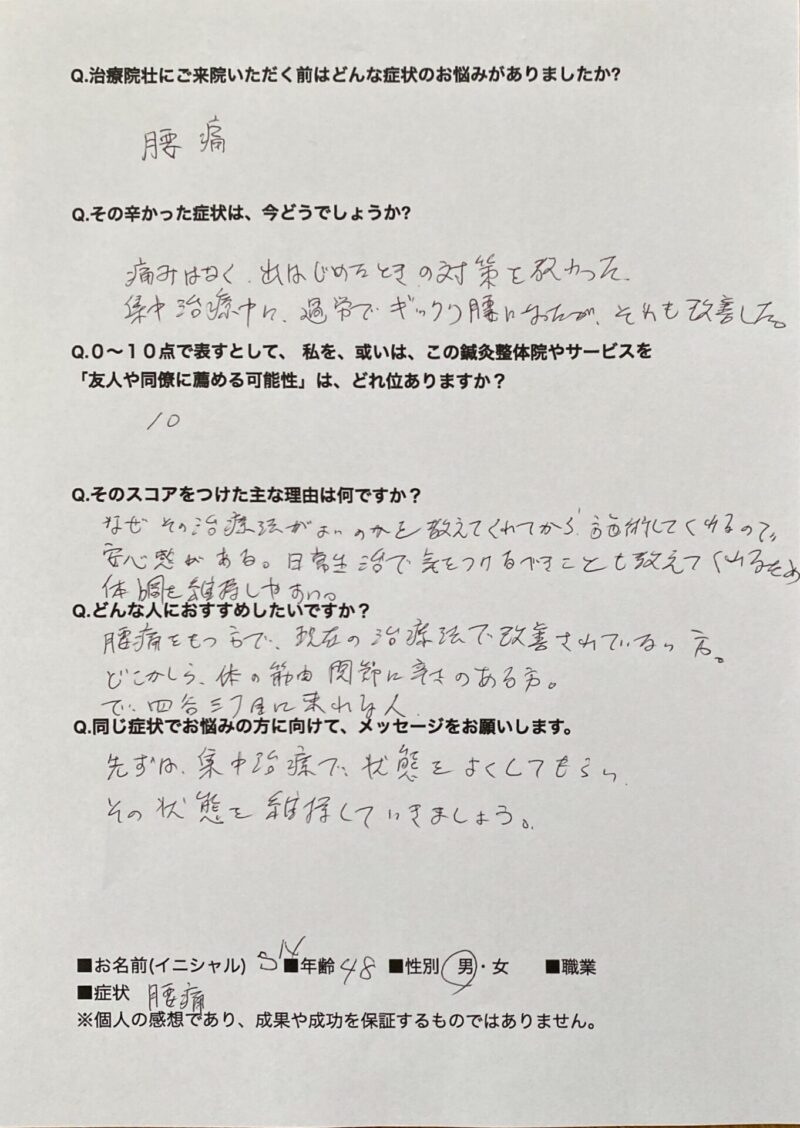 Q.治療院壮にご来院いただく前はどんな症状のお悩みがありましたか?
腰痛
Q.その辛かった症状は、今どうでしょうか?
痛みはなく、出はじめたときの対策を教わった。
集中治療中に、過労でギックリ腰になったが、それも改善した。
Q.0〜10点で表すとして、 私を、或いは、この鍼灸整体院やサービスを
「友人や同僚に薦める可能性」は、どれ位ありますか?
10
Q.そのスコアをつけた主な理由は何ですか?
なぜその治療法がよいのかを教えてくれてから施術してくれるので、
安心感がある。日常生活で気をつけるべきことも教えてくれるため
体調を維持しやすい。
Q.どんな人におすすめしたいですか?
腰痛をもつ方で、現在の治療法で改善されていない方。
どこかしら、体の筋肉 関節に辛さのある方。
で、四谷三丁目に来れる人
Q.同じ症状でお悩みの方に向けて、メッセージをお願いします。
先ずは、集中治療で、状態をよくしてもらい、
その状態を維持していきましょう。
■お名前(イニシャル) ■年齢 48 ■性別 男・女 ■職業
■症状 腰痛
※個人の感想であり、成果や成功を保証するものではありません。